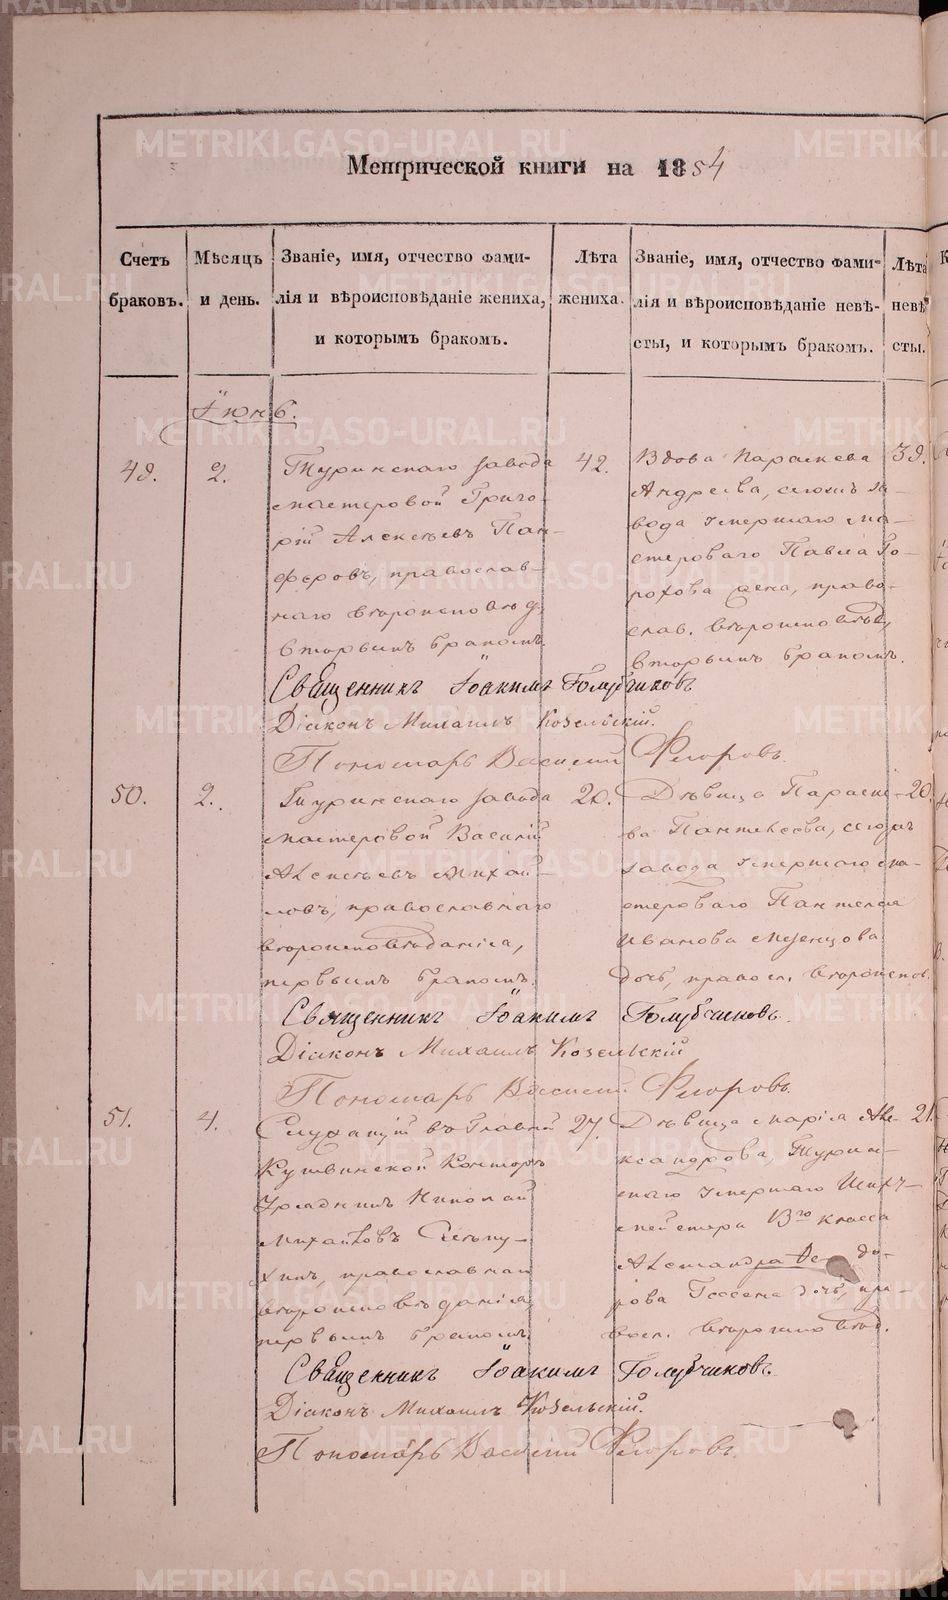 Метрической книги на 1854
Счетъ браковъ.
Мѣсяцъ и день.
Званіе, имя, отчество фами-
лія и вѣроисповѣданіе жениха,
и которымъ бракомъ.
Лѣта жениха.
Званіе, имя, отчество фами-
лія и вѣроисповѣданіе невѣ-
сты, и которымъ бракомъ.
Лѣта невѣ сты.
Іюнь.
49.
2.
Туринскаго завода
мастеровой Григо-
рій Алексѣевъ Пан-
феровъ, православ-
наго вѣроисповѣд.
вторымъ бракомъ.
42.
Вдова Параскева
Андреева, сегожъ за-
вода умершаго ма-
стероваго Павла Го-
рохова жена, право-
слав. вѣроисповѣд.
вторымъ бракомъ.
39.
Священникъ Іоакимъ Голубчиковъ
Діаконъ Михаилъ Козельскій.
Пономарь Василій Флоровъ.
50.
2.
Туринскаго завода
мастеровой Василій
Алексѣевъ Михай-
ловъ, православнаго
вѣроисповѣданія,
первымъ бракомъ.
20.
Дѣвица Параске-
ва Пантелѣева, сегожъ
завода умершаго ма-
стероваго Пантелея
Иванова Мезенцова
дочь, правосл. вѣроиспов.
20.
Священникъ Іоакимъ Голубчиковъ.
Діаконъ Михаилъ Козельскій
Пономарь Василій Флоровъ.
51.
4.
Служащій въ Главной
Кушвинской Конторѣ
Урядникъ Николай
Михайловъ
православнаго
вѣроисповѣданія
первымъ бракомъ.
27.
Дѣвица Марія Але-
ксандрова, Турин-
скаго умершаго Шихт-
мейстера 13го класса
Александра Ѳео до-
рова дочь, пра-
восл. вѣроисповѣд.
21.
Священникъ Іоакимъ Голубчиковъ.
Діаконъ Михаилъ Козельскій.
Пономарь Василій Флоровъ.
METRIKI.GASO-URAL.RU